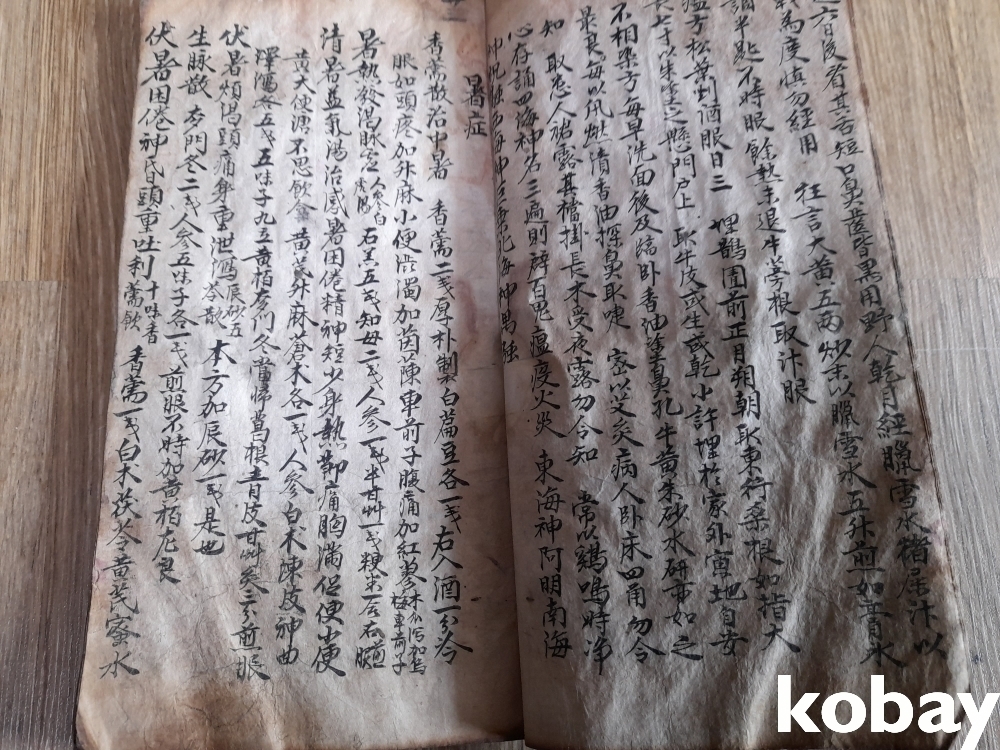 六日後看其舌短口鼻齒皆黑用野人乾月經臘雪水猪屎汁以
爲度慎勿經用 狂言大黃五兩炒末以臘雪水五升煎如膏水
調半匙不時眼 餘熱未退牛蒡根取汁眼
方松葉到酒眼日三 埋鵲園前正月朔朝取東行桑根如指大
長七寸以朱塗之懸門戶上 取牛皮或生或乾小許埋於家外
不相染方每早洗面後及臨臥香油塗鼻孔 牛黃朱砂水研亦如之
最良每以紙燃清香油探鼻取嚏 密以艾灸病人臥床四角勿令
知 取患人 露其襠掛長木受夜露勿令知 常以鷄鳴時淨
心存誦四海神名三遍則辟百鬼瘟疫火災 東海神阿明南海
神祝融西海神巨乘北海神禺強
暑症
香薷散治中暑 香薷二戔厚朴製白扁豆各一戔右入酒一分冷
眼如頭疼加升麻小便澁濁加茵蔯車前子腹痛加紅蓼
暑熱發渴脉虛 人參白虎湯 石羔五戔知母二戔人參一戔半甘艸一戔粳米一合右煎眼
清暑益氣湯治感暑困倦精神短少身熱節痛胸滿促便小便
黃大便溏不思飮食 黃芪升麻蒼朮各一戔人參白朮陳皮神曲
澤瀉各五分五味子九立黃栢麥門冬當歸葛根靑皮甘艸各三分煎眼
伏暑煩渴頭痛身重泄瀉辰砂五苓散 本方加辰砂一戔是也
生脉散 麥門冬二戔人參五味子各一戔煎眼不時加黃栢尤良
伏暑困倦神昏頭重吐利十味香薷飮 香薷一戔白朮茯苓黃芪蜜水
kobay